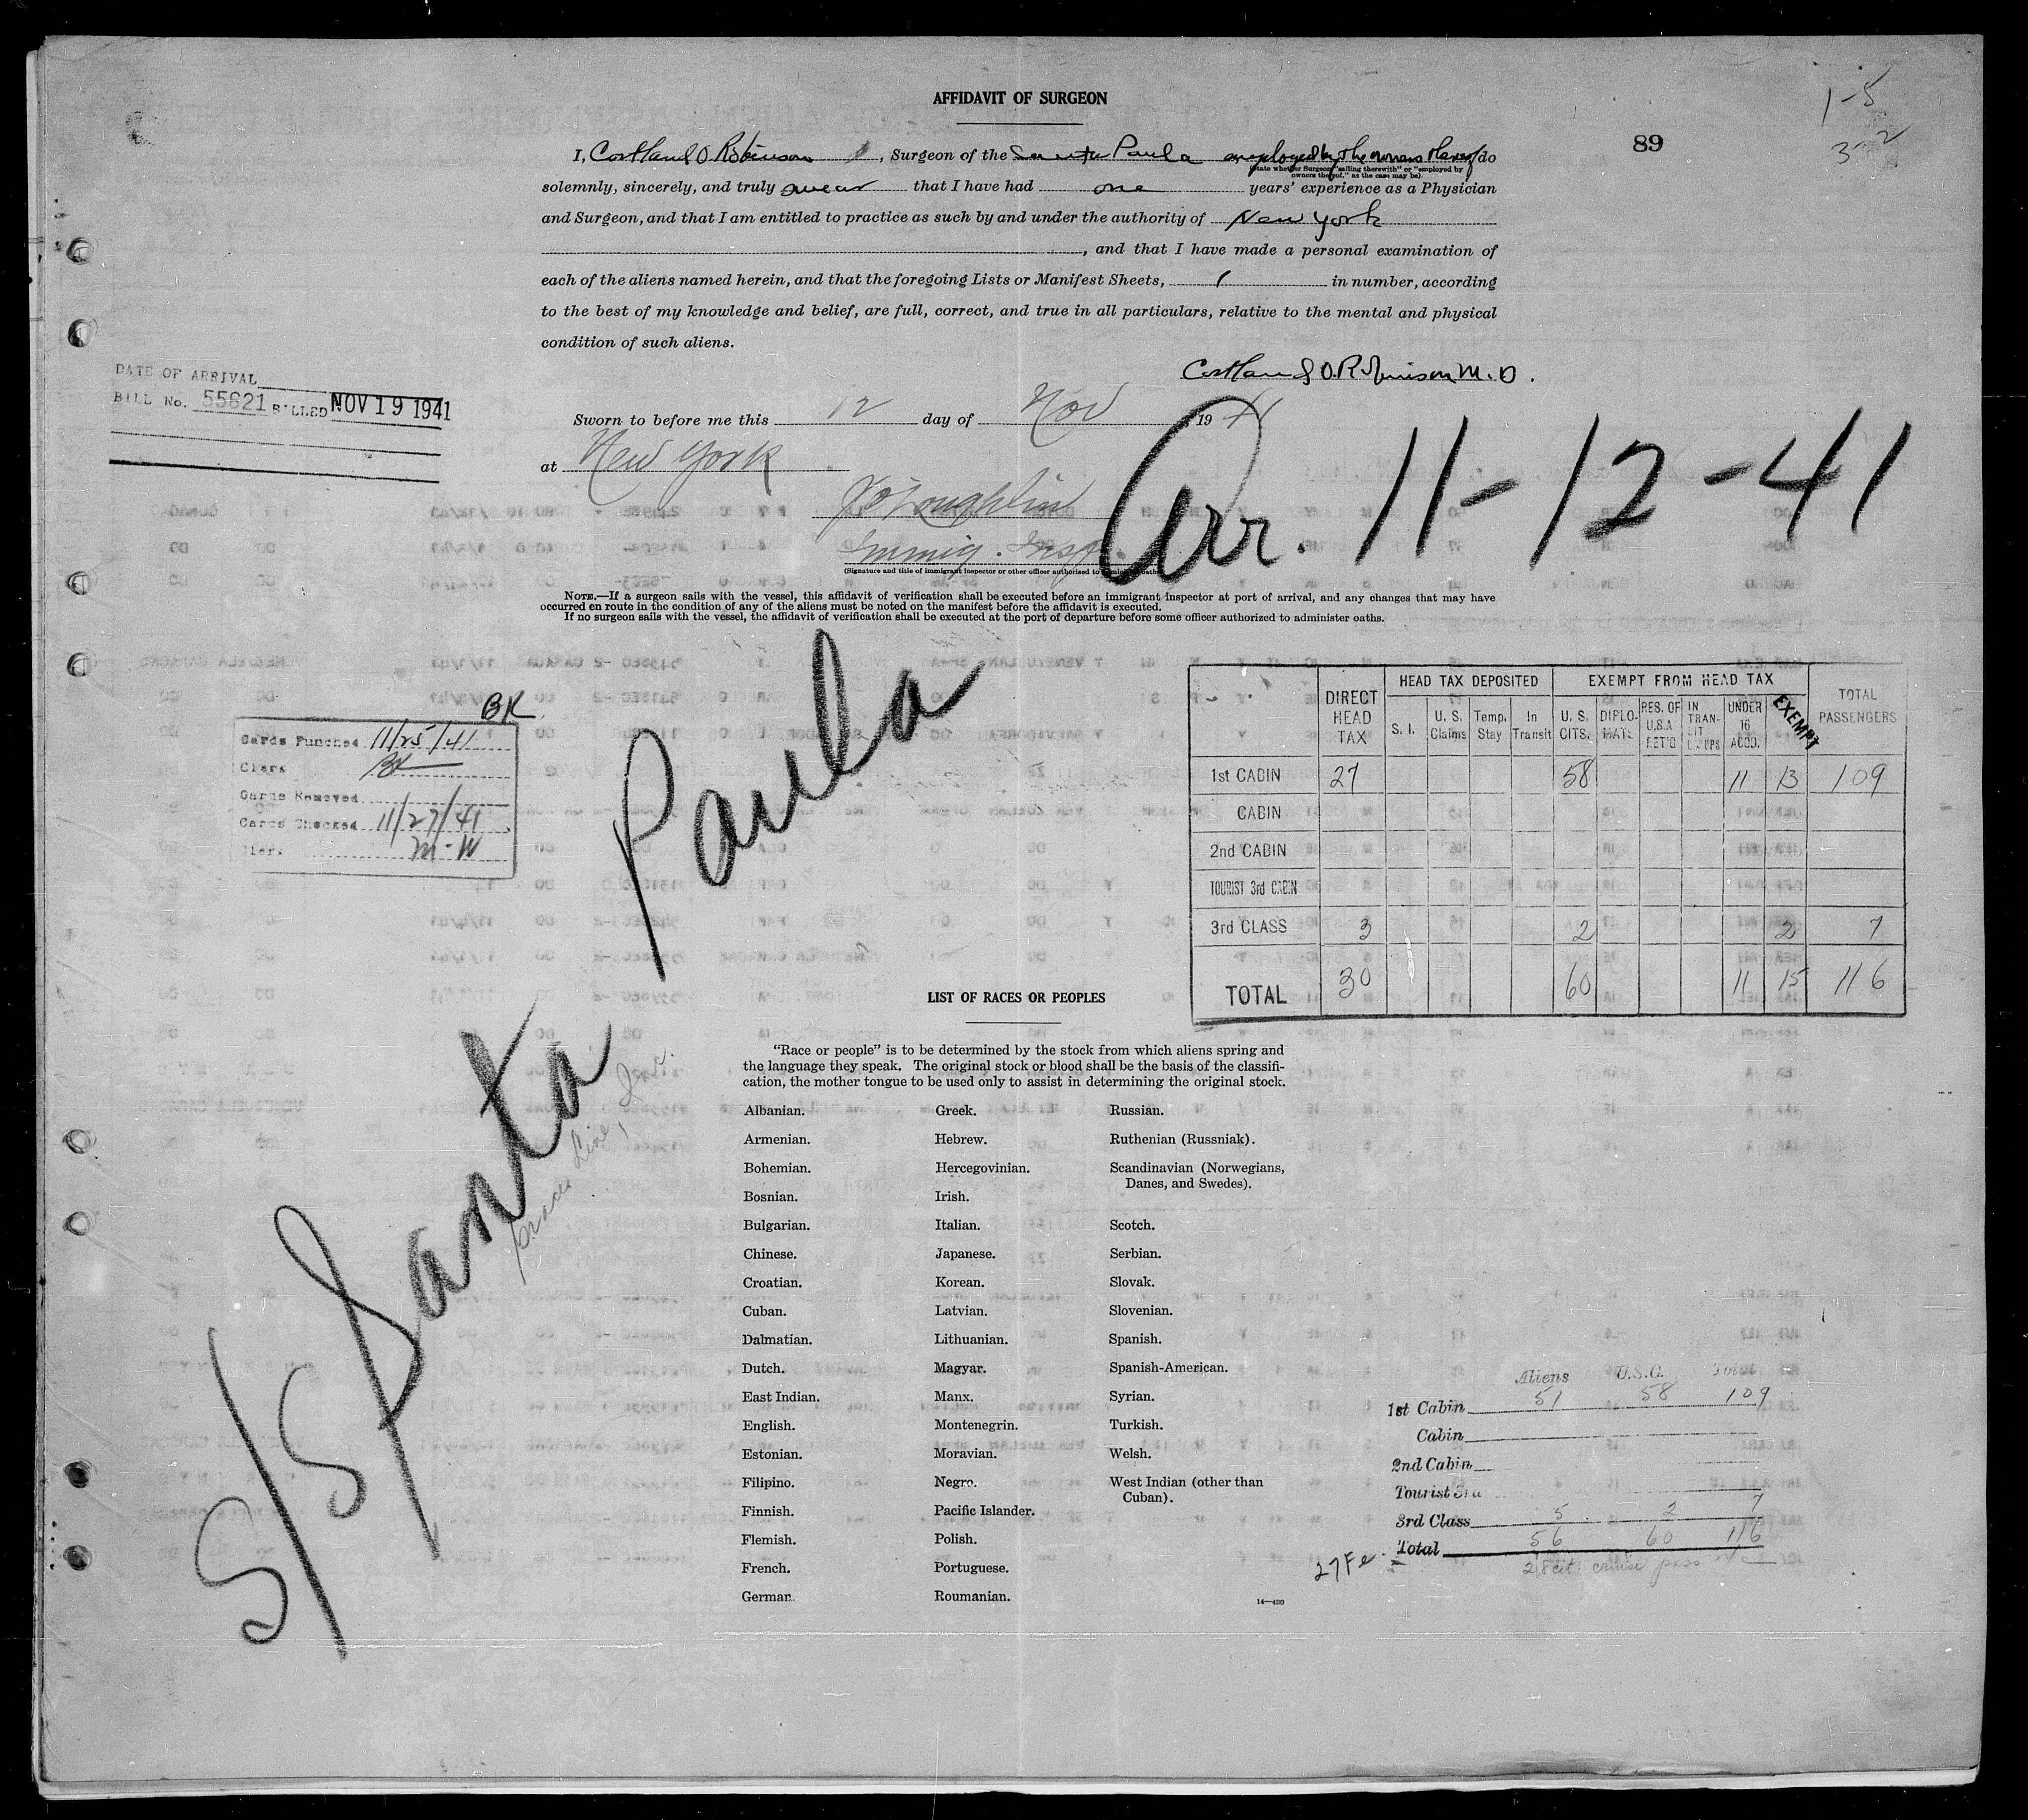 AFFIDAVIT OF SURGEON
89
1-5
3-2
I, Cortland O Robinson, Surgeon of the Santa Paula employed by the owners thereof do
(State whether Surgeon "sailing therewith" or "employed by owners thereof," as the case may be)
solemnly, sincerely, and truly swear that I have had one years' experience as a Physician
and Surgeon, and that I am entitled to practice as such by and under the authority of New York
, and that I have made a personal examination of
each of the aliens named herein, and that the foregoing Lists or Manifest Sheets, 1 in number, according
to the best of my knowledge and belief, are full, correct, and true in all particulars, relative to the mental and physical
condition of such aliens.
Cortland O. Robinson M.D.
DATE OF ARRIVAL
BILL No. 55621 BILLED NOV 19 1941
Sworn to before me this 12 day of Nov 1941
at New York
J O'Loughlin
Immig. Insp.
(Signature and title of immigrant inspector or other officer authorized to administer oaths)
Arr. 11-12-41
NOTE.—If a surgeon sails with the vessel, this affidavit of verification shall be executed before an immigrant inspector at port of arrival, and any changes that may have
occurred en route in the condition of any of the aliens must be noted on the manifest before the affidavit is executed.
If no surgeon sails with the vessel, the affidavit of verification shall be executed at the port of departure before some officer authorized to administer oaths.
BK
Cards Punched 11/25/41
Clerk BK
Cards Removed
Cards Checked 11/27/41
Clerk M-W
S/S Santa Paula
Grace Line, Inc.
DIRECT HEAD TAX HEAD TAX DEPOSITED EXEMPT FROM HEAD TAX TOTAL PASSENGERS
S. I. U. S. Claims Temp. Stay In Transit U. S. CITS. DIPLO-MATS RES. OF U.S.A RET'G IN TRAN-SIT UNDER 16 ACCD. EXEMPT
1st CABIN 27 58 11 13 109
CABIN
2nd CABIN
TOURIST 3rd CABIN
3rd CLASS 3 2 2 7
TOTAL 30 60 11 15 116
LIST OF RACES OR PEOPLES
"Race or people" is to be determined by the stock from which aliens spring and
the language they speak. The original stock or blood shall be the basis of the classifi-
cation, the mother tongue to be used only to assist in determining the original stock.
Albanian.
Armenian.
Bohemian.
Bosnian.
Bulgarian.
Chinese.
Croatian.
Cuban.
Dalmatian.
Dutch.
East Indian.
English.
Estonian.
Filipino.
Finnish.
Flemish.
French.
German.
Greek.
Hebrew.
Hercegovinian.
Irish.
Italian.
Japanese.
Korean.
Latvian.
Lithuanian.
Magyar.
Manx.
Montenegrin.
Moravian.
Negro.
Pacific Islander.
Polish.
Portuguese.
Roumanian.
Russian.
Ruthenian (Russniak).
Scandinavian (Norwegians,
Danes, and Swedes).
Scotch.
Serbian.
Slovak.
Slovenian.
Spanish.
Spanish-American.
Syrian.
Turkish.
Welsh.
West Indian (other than
Cuban).
14—430
Aliens U.S.C. Total
1st Cabin 51 58 109
Cabin
2nd Cabin
Tourist 3rd
3rd Class 5 2 7
Total 56 60 116
27 Fe.
cruise pass